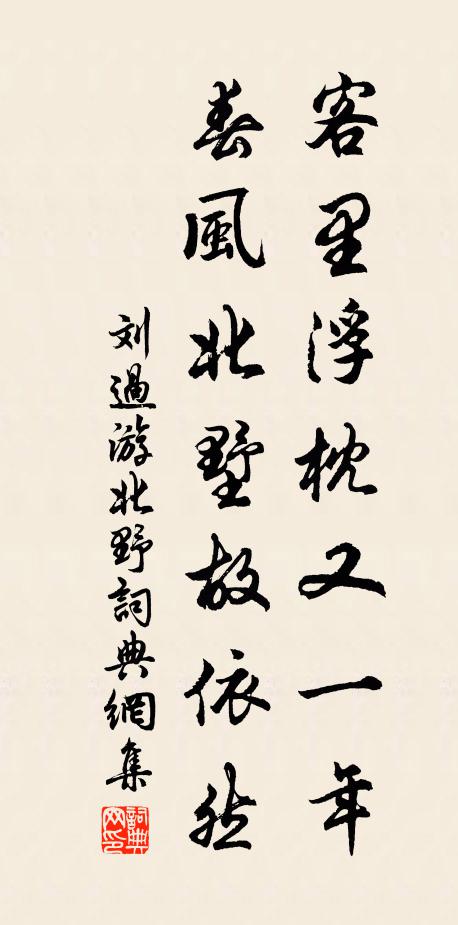 客里浮枕又一年
春風北墅故依然
刘過游北野詞典網集
詞典网印